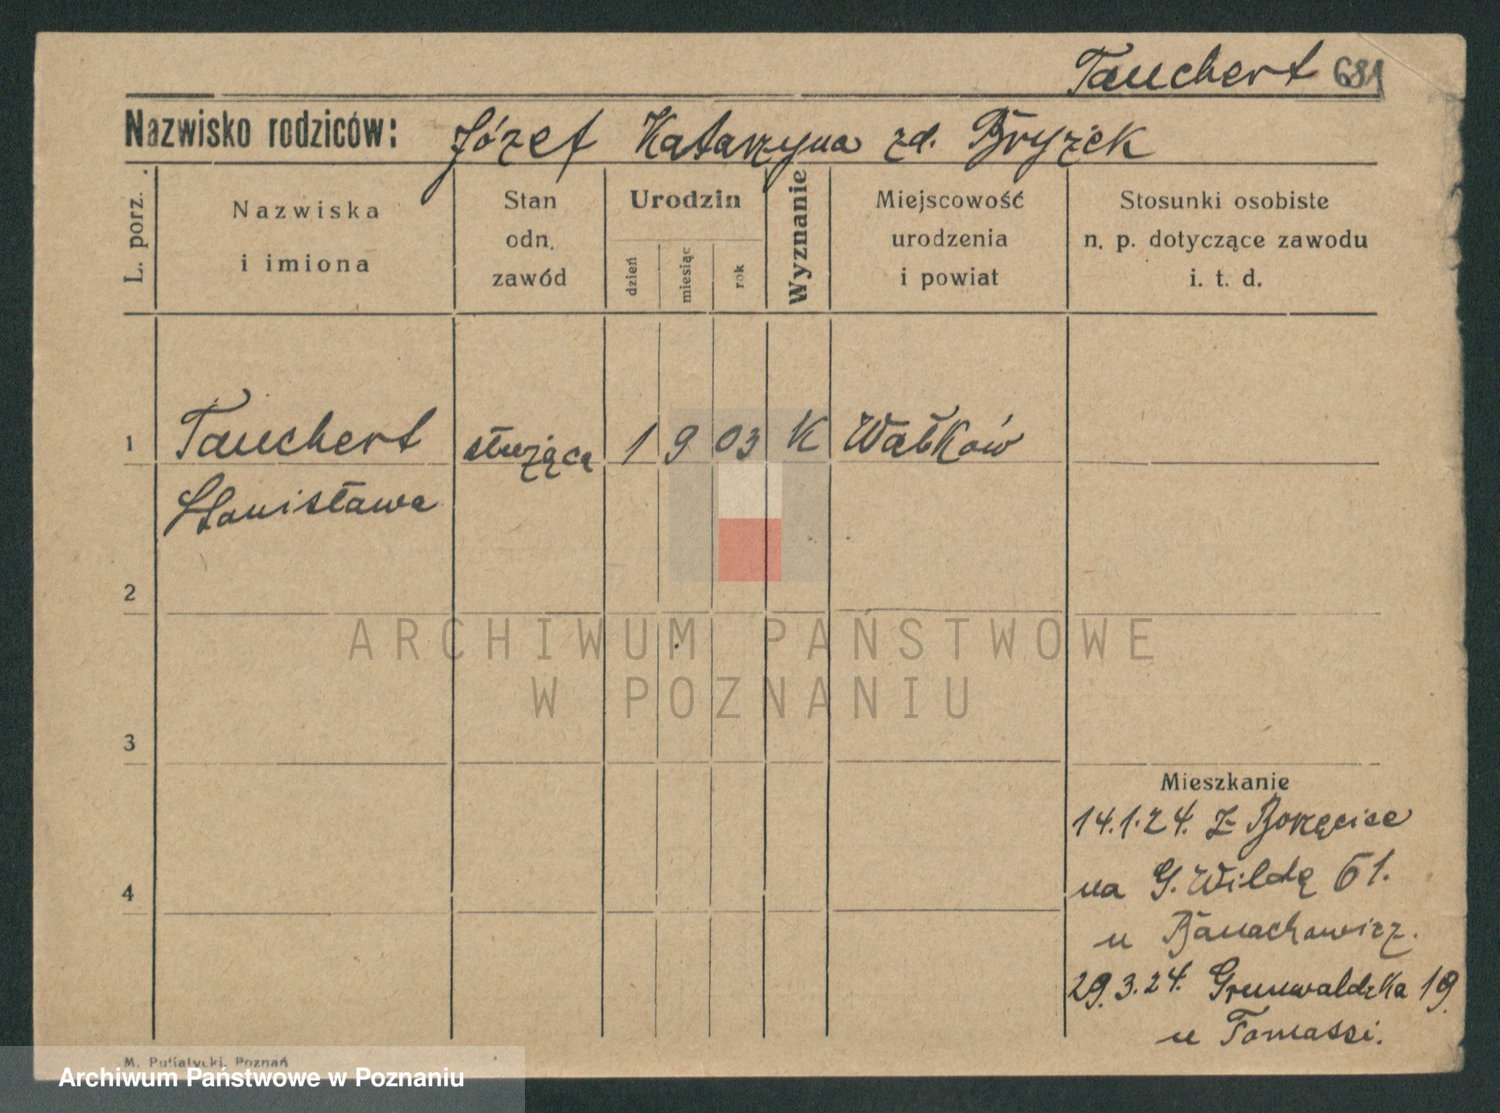 Tauchert 681
Nazwisko rodziców: Józef Katarzyna zd. Bryzek
L. porz.
Nazwiska
i imiona
Stan
odn.
zawód
Urodzin
dzień
miesiąc
rok
Wyznanie
Miejscowość
urodzenia
i powiat
Stosunki osobiste
n. p. dotyczące zawodu
i. t. d.
1 Tauchert służąca 1 9 03 K Wałków
Stanisława
2
ARCHIWUM PAŃSTWOWE
W POZNANIU
3
Mieszkanie
14.1.24. Z Borzęcice
4
na G. Wildę 61.
u Banachowicz.
29.3.24. Grunwaldzka 19
u Tomassi.
M. Putiatycki, Poznań
Archiwum Państwowe w Poznaniu